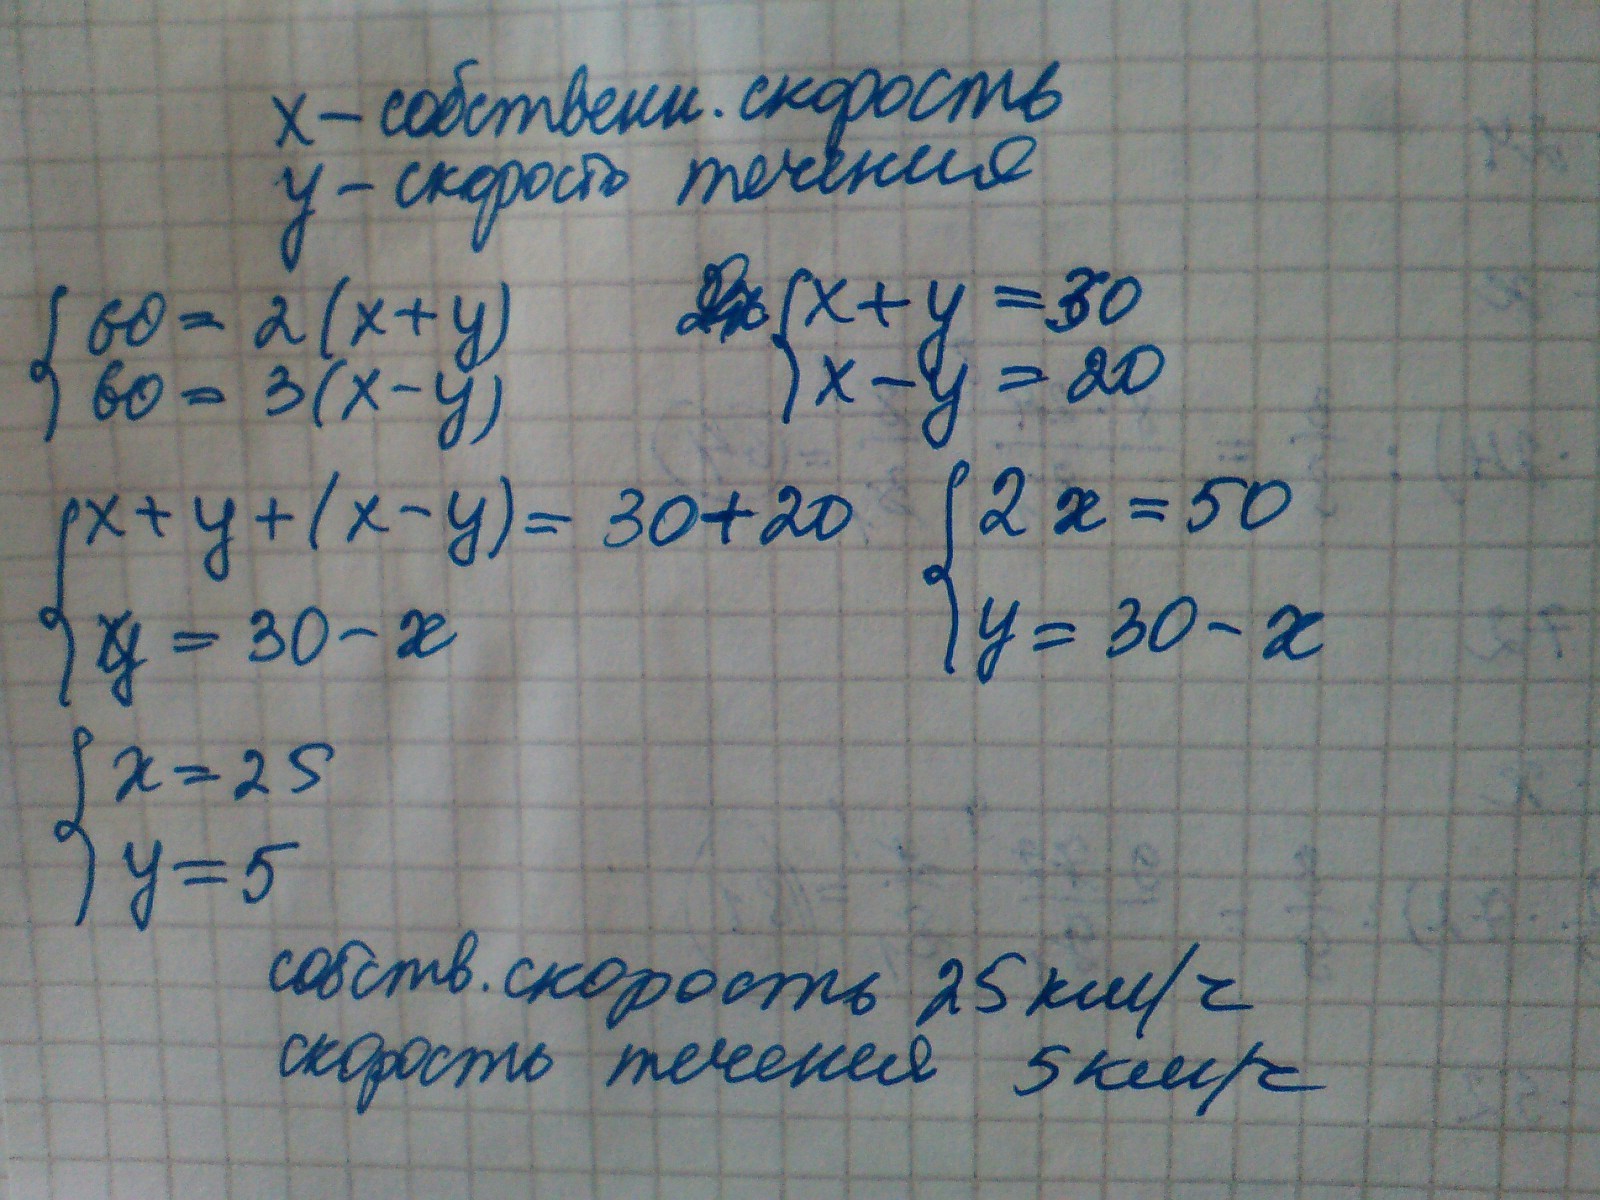 x – собственн. скорость
y – скорость течения
{ 60 = 2(x+y)
60 = 3(x–y)
{ x + y = 30
x – y = 20
{ x + y + (x – y) = 30 + 20
y = 30 – x
{ 2x = 50
y = 30 – x
{ x = 25
y = 5
собств. скорость 25 км/ч
скорость течения 5 км/ч